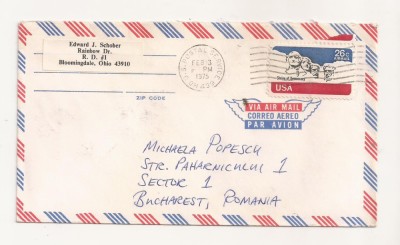 Edward J. Schober
Rainbow Dr.
R. D. #1
Bloomingdale, Ohio 43910
POSTAL SERVICE
FEB 3
PM
1975
26c
USA
ZIP CODE
VIA AIR MAIL
CORREO AEREO
PAR AVION
MICHAELA POPESCU
STR. PAHARNICULUI 1
SECTOR 1
BUCHAREST, ROMANIA